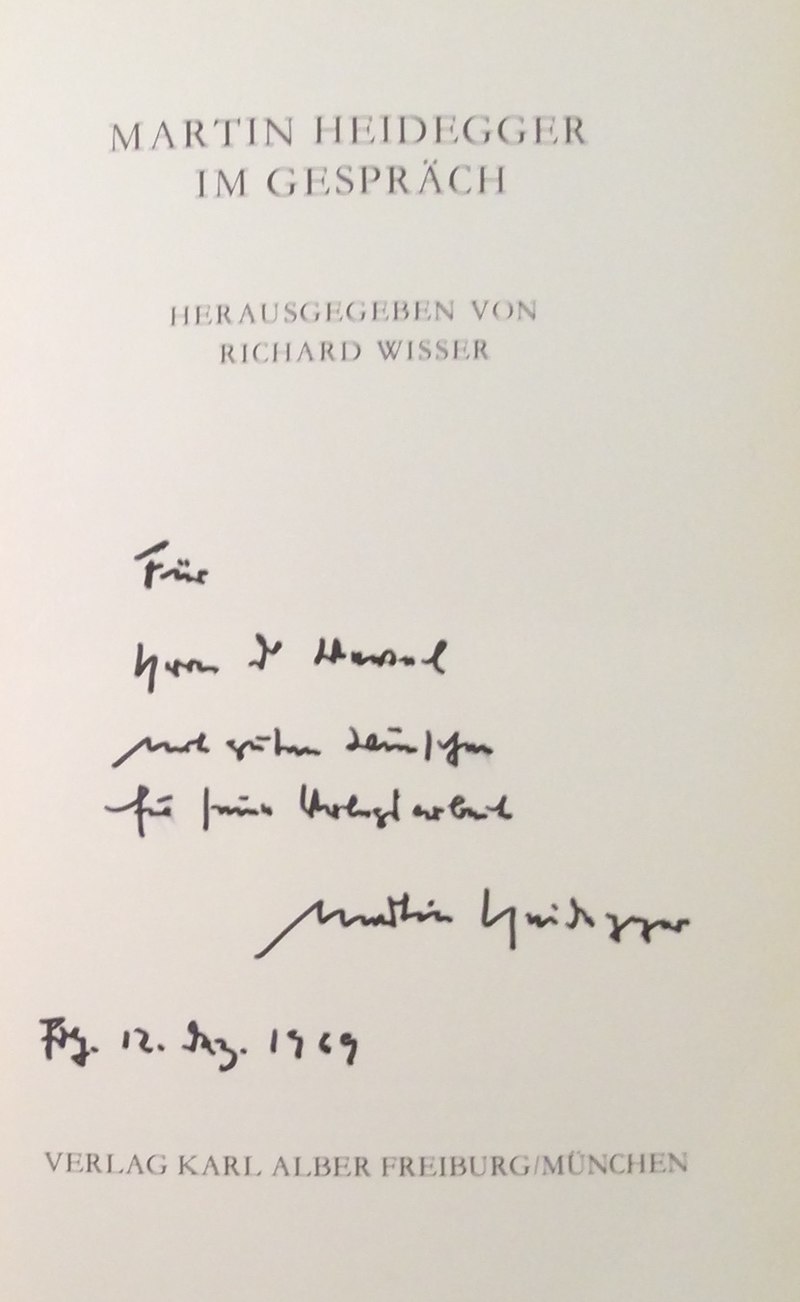 MARTIN HEIDEGGER
IM GESPRÄCH
HERAUSGEGEBEN VON
RICHARD WISSER
Für
Herrn Dr
mit guten Wünschen
für seine Verlagsarbeit
Martin Heidegger
Frbg. 12. Dez. 1969
VERLAG KARL ALBER FREIBURG/MÜNCHEN